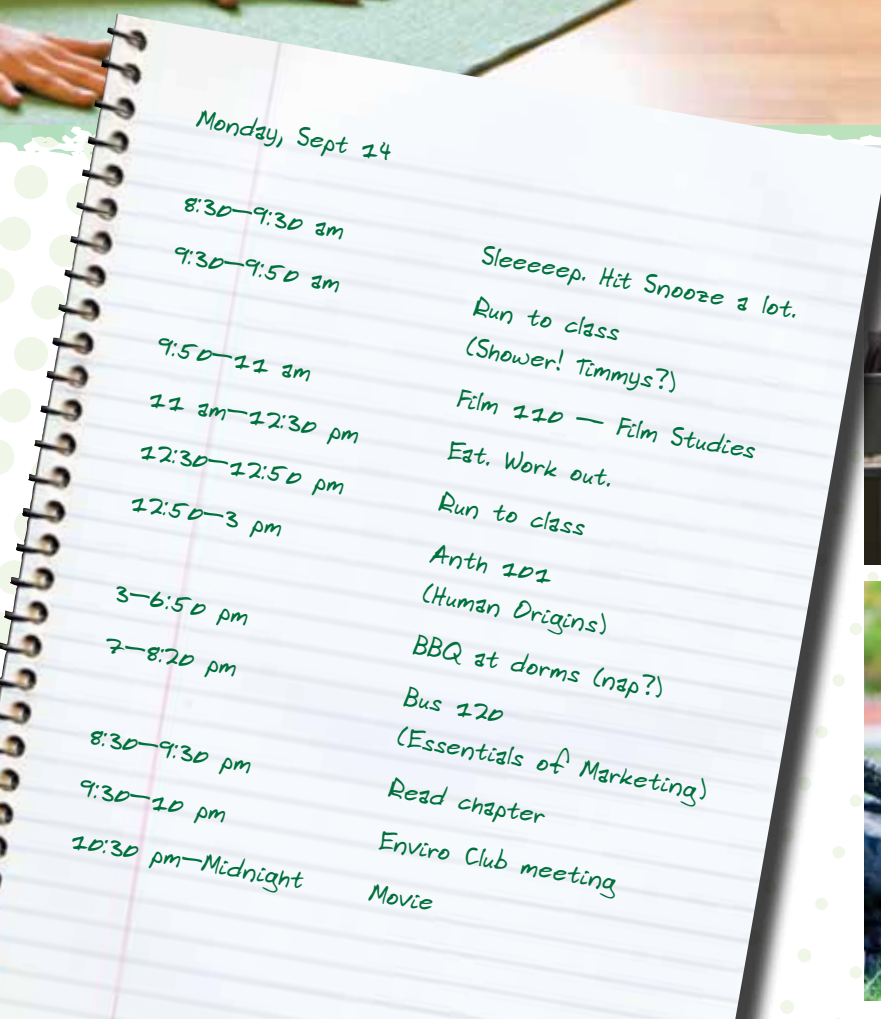 Monday, Sept 14
8:30—9:30 am Sleeeeep. Hit Snooze a lot.
9:30—9:50 am Run to class
(Shower! Timmys?)
9:50—11 am Film 110 — Film Studies
11 am—12:30 pm Eat. Work out.
12:30—12:50 pm Run to class
12:50—3 pm Anth 101
(Human Origins)
3—6:50 pm BBQ at dorms (nap?)
7—8:20 pm Bus 120
(Essentials of Marketing)
8:30—9:30 pm Read chapter
9:30—10 pm Enviro Club meeting
10:30 pm—Midnight Movie